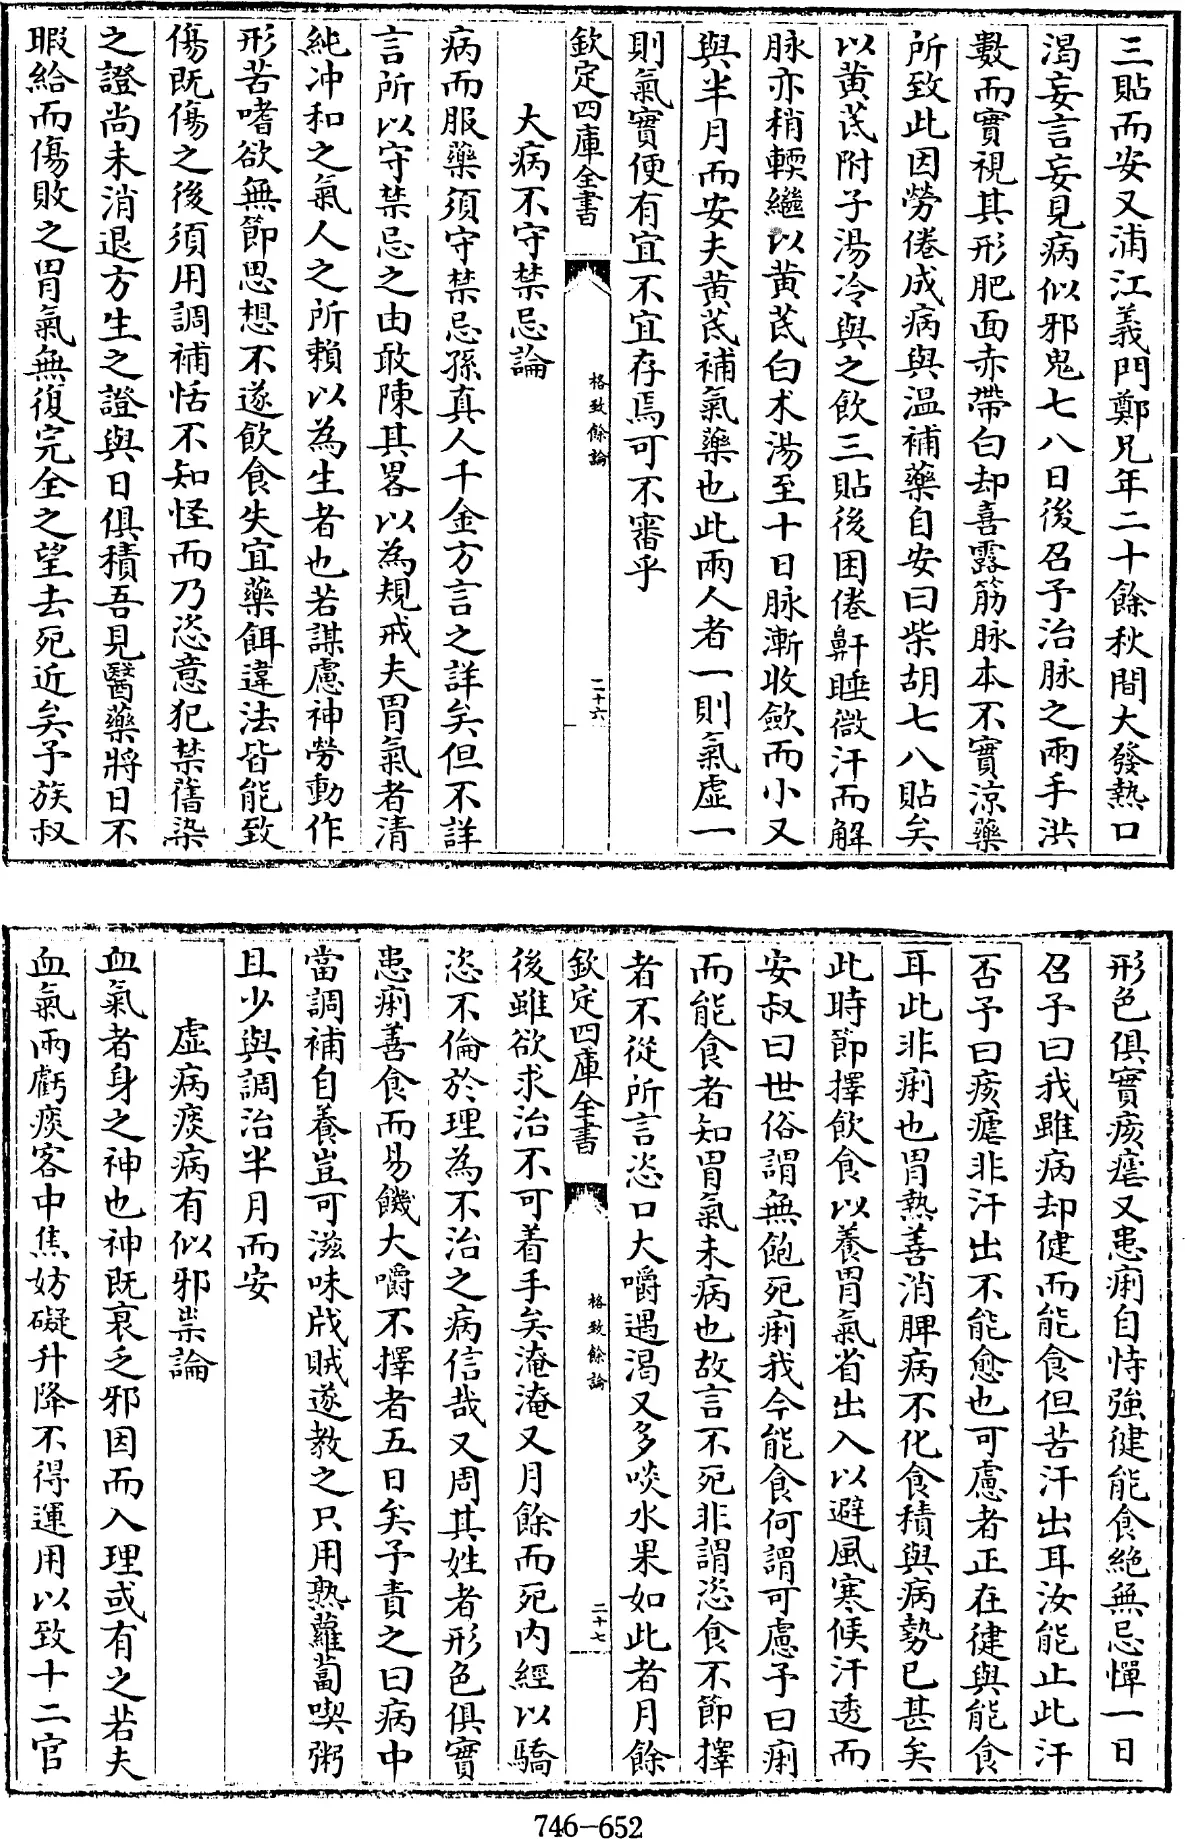 三貼而安又浦江義門鄭兄年二十餘秋間大發熱口
渴妄言妄見病似邪鬼七八日後召予治脉之兩手洪
數而實視其形肥面赤帶白却喜露筋脉本不實涼藥
所致此因勞倦成病與温補藥自安曰柴胡七八貼矣
以黄芪附子湯冷與之飲三貼後困倦鼾睡微汗而解
脉亦稍輭繼以黄芪白术湯至十日脉漸收斂而小又
與半月而安夫黄芪補氣藥也此兩人者一則氣虚一
則氣實便有宜不宜存焉可不審乎
欽定四庫全書
格致餘論
二十六
大病不守禁忌論
病而服藥須守禁忌孫真人千金方言之詳矣但不詳
言所以守禁忌之由敢陳其畧以為規戒夫胃氣者清
純冲和之氣人之所賴以為生者也若謀慮神勞動作
形苦嗜欲無節思想不遂飲食失宜藥餌違法皆能致
傷既傷之後須用調補恬不知怪而乃恣意犯禁舊染
之證尚未消退方生之證與日俱積吾見醫藥將日不
暇給而傷敗之胃氣無復完全之望去死近矣予族叔
形色俱實痎瘧又患痢自恃強健能食絶無忌憚一日
召予曰我雖病却健而能食但苦汗出耳汝能止此汗
否予曰痎瘧非汗出不能愈也可慮者正在健與能食
耳此非痢也胃熱善消脾病不化食積與病勢已甚矣
此時節擇飲食以養胃氣省出入以避風寒候汗透而
安叔曰世俗謂無飽死痢我今能食何謂可慮予曰痢
而能食者知胃氣未病也故言不死非謂恣食不節擇
者不從所言恣口大嚼遇渴又多啖水果如此者月餘
欽定四庫全書
格致餘論
二十七
後雖欲求治不可着手矣淹淹又月餘而死内經以驕
恣不倫於理為不治之病信哉又周其姓者形色俱實
患痢善食而易饑大嚼不擇者五日矣予責之曰病中
當調補自養豈可滋味戕賊遂教之只用熟蘿蔔喫粥
且少與調治半月而安
虚病痰病有似邪祟論
血氣者身之神也神既衰乏邪因而入理或有之若夫
血氣兩虧痰客中焦妨礙升降不得運用以致十二官
746-652